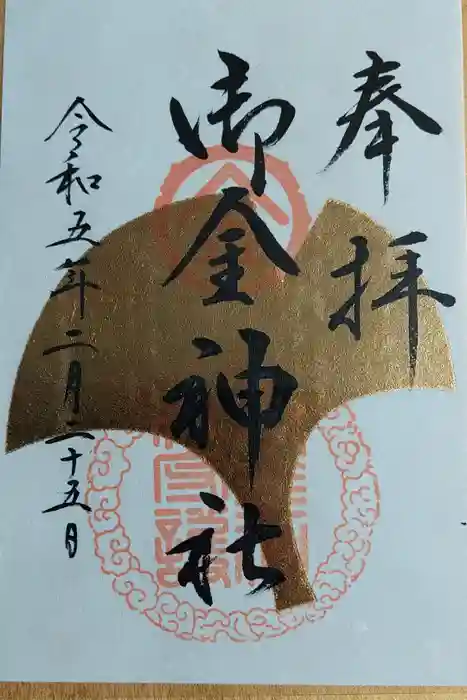 奉拝
御金神社
令和五年二月二十五日